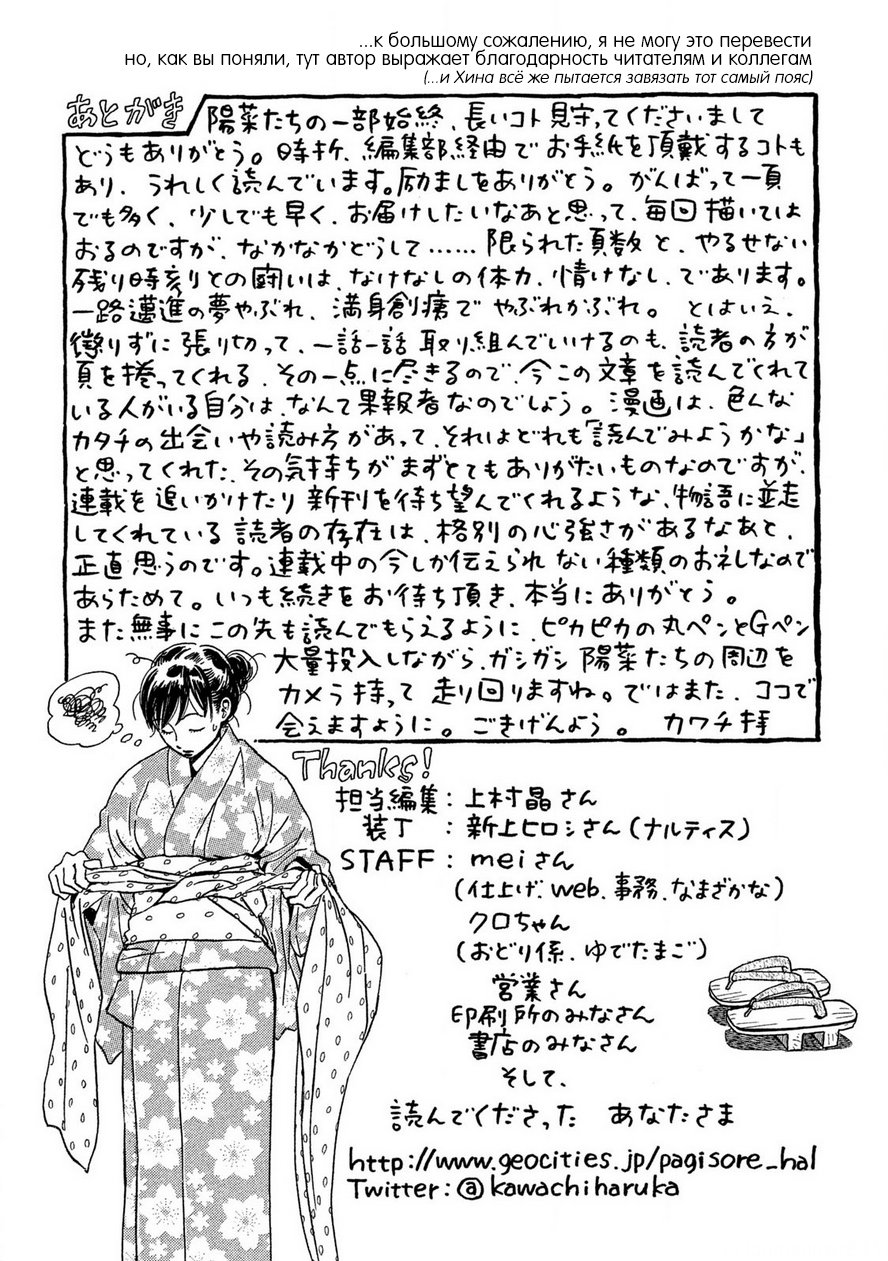 ...к большому сожалению, я не могу это перевести
но, как вы поняли, тут автор выражает благодарность читателям и коллегам
(...и Хина всё же пытается завязать тот самый пояс)
あとがき
陽菜たちの一部始終、長いコト見守ってくださいまして
どうもありがとう。時折、編集部経由でお手紙を頂戴するコトも
あり、うれしく読んでいます。励ましをありがとう。がんばって一頁
でも多く、少しでも早く、お届けしたいなあと思って、毎回描いては
おるのですが、なかなかどうして……限られた頁数と、やるせない
残り時刻との闘いは、なけなしの体力、情けなし、であります。
一路邁進の夢やぶれ、満身創痍でやぶれかぶれ。とはいえ、
懲りずに張り切って、一話一話取り組んでいけるのも、読者の方が
頁を捲ってくれる、その一点に尽きるので、今この文章を読んでくれて
いる人がいる自分は、なんて果報者なのでしょう。漫画は、色んな
カタチの出会いや読み方があって、それはどれも「読んでみようかな」
と思ってくれた、その気持ちがまずとてもありがたいものなのですが、
連載を追いかけたり新刊を待ち望んでくれるような、物語に並走
してくれている読者の存在は、格別の心強さがあるなあと、
正直思うのです。連載中の今しか伝えられない種類のお礼なので
あらためて。いつも続きをお待ち頂き、本当にありがとう。
また無事にこの先も読んでもらえるように、ピカピカの丸ペンとGペン
大量投入しながら、ガシガシ陽菜たちの周辺を
カメラ持って走り回りますね。ではまた、ココで
会えますように。ごきげんよう。 カワチ拝
Thanks!
担当編集：上村晶さん
装丁：新上ヒロシさん(ナルティス)
STAFF：meiさん
(仕上げ、web、事務、なまざかな)
クロちゃん
(おどり係、ゆでたまご)
営業さん
印刷所のみなさん
書店のみなさん
そして、
読んでくださった あなたさま
http://www.geocities.jp/pagisore_hal
Twitter:@kawachiharuka